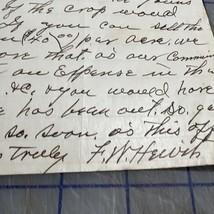 of the crop would
if you can sell the
($0.00) par acre, we
one that, as our Commis
an Expense in the
&c, & you would have
has been out. So. ge
so. soon. as this off
s truly F. W.